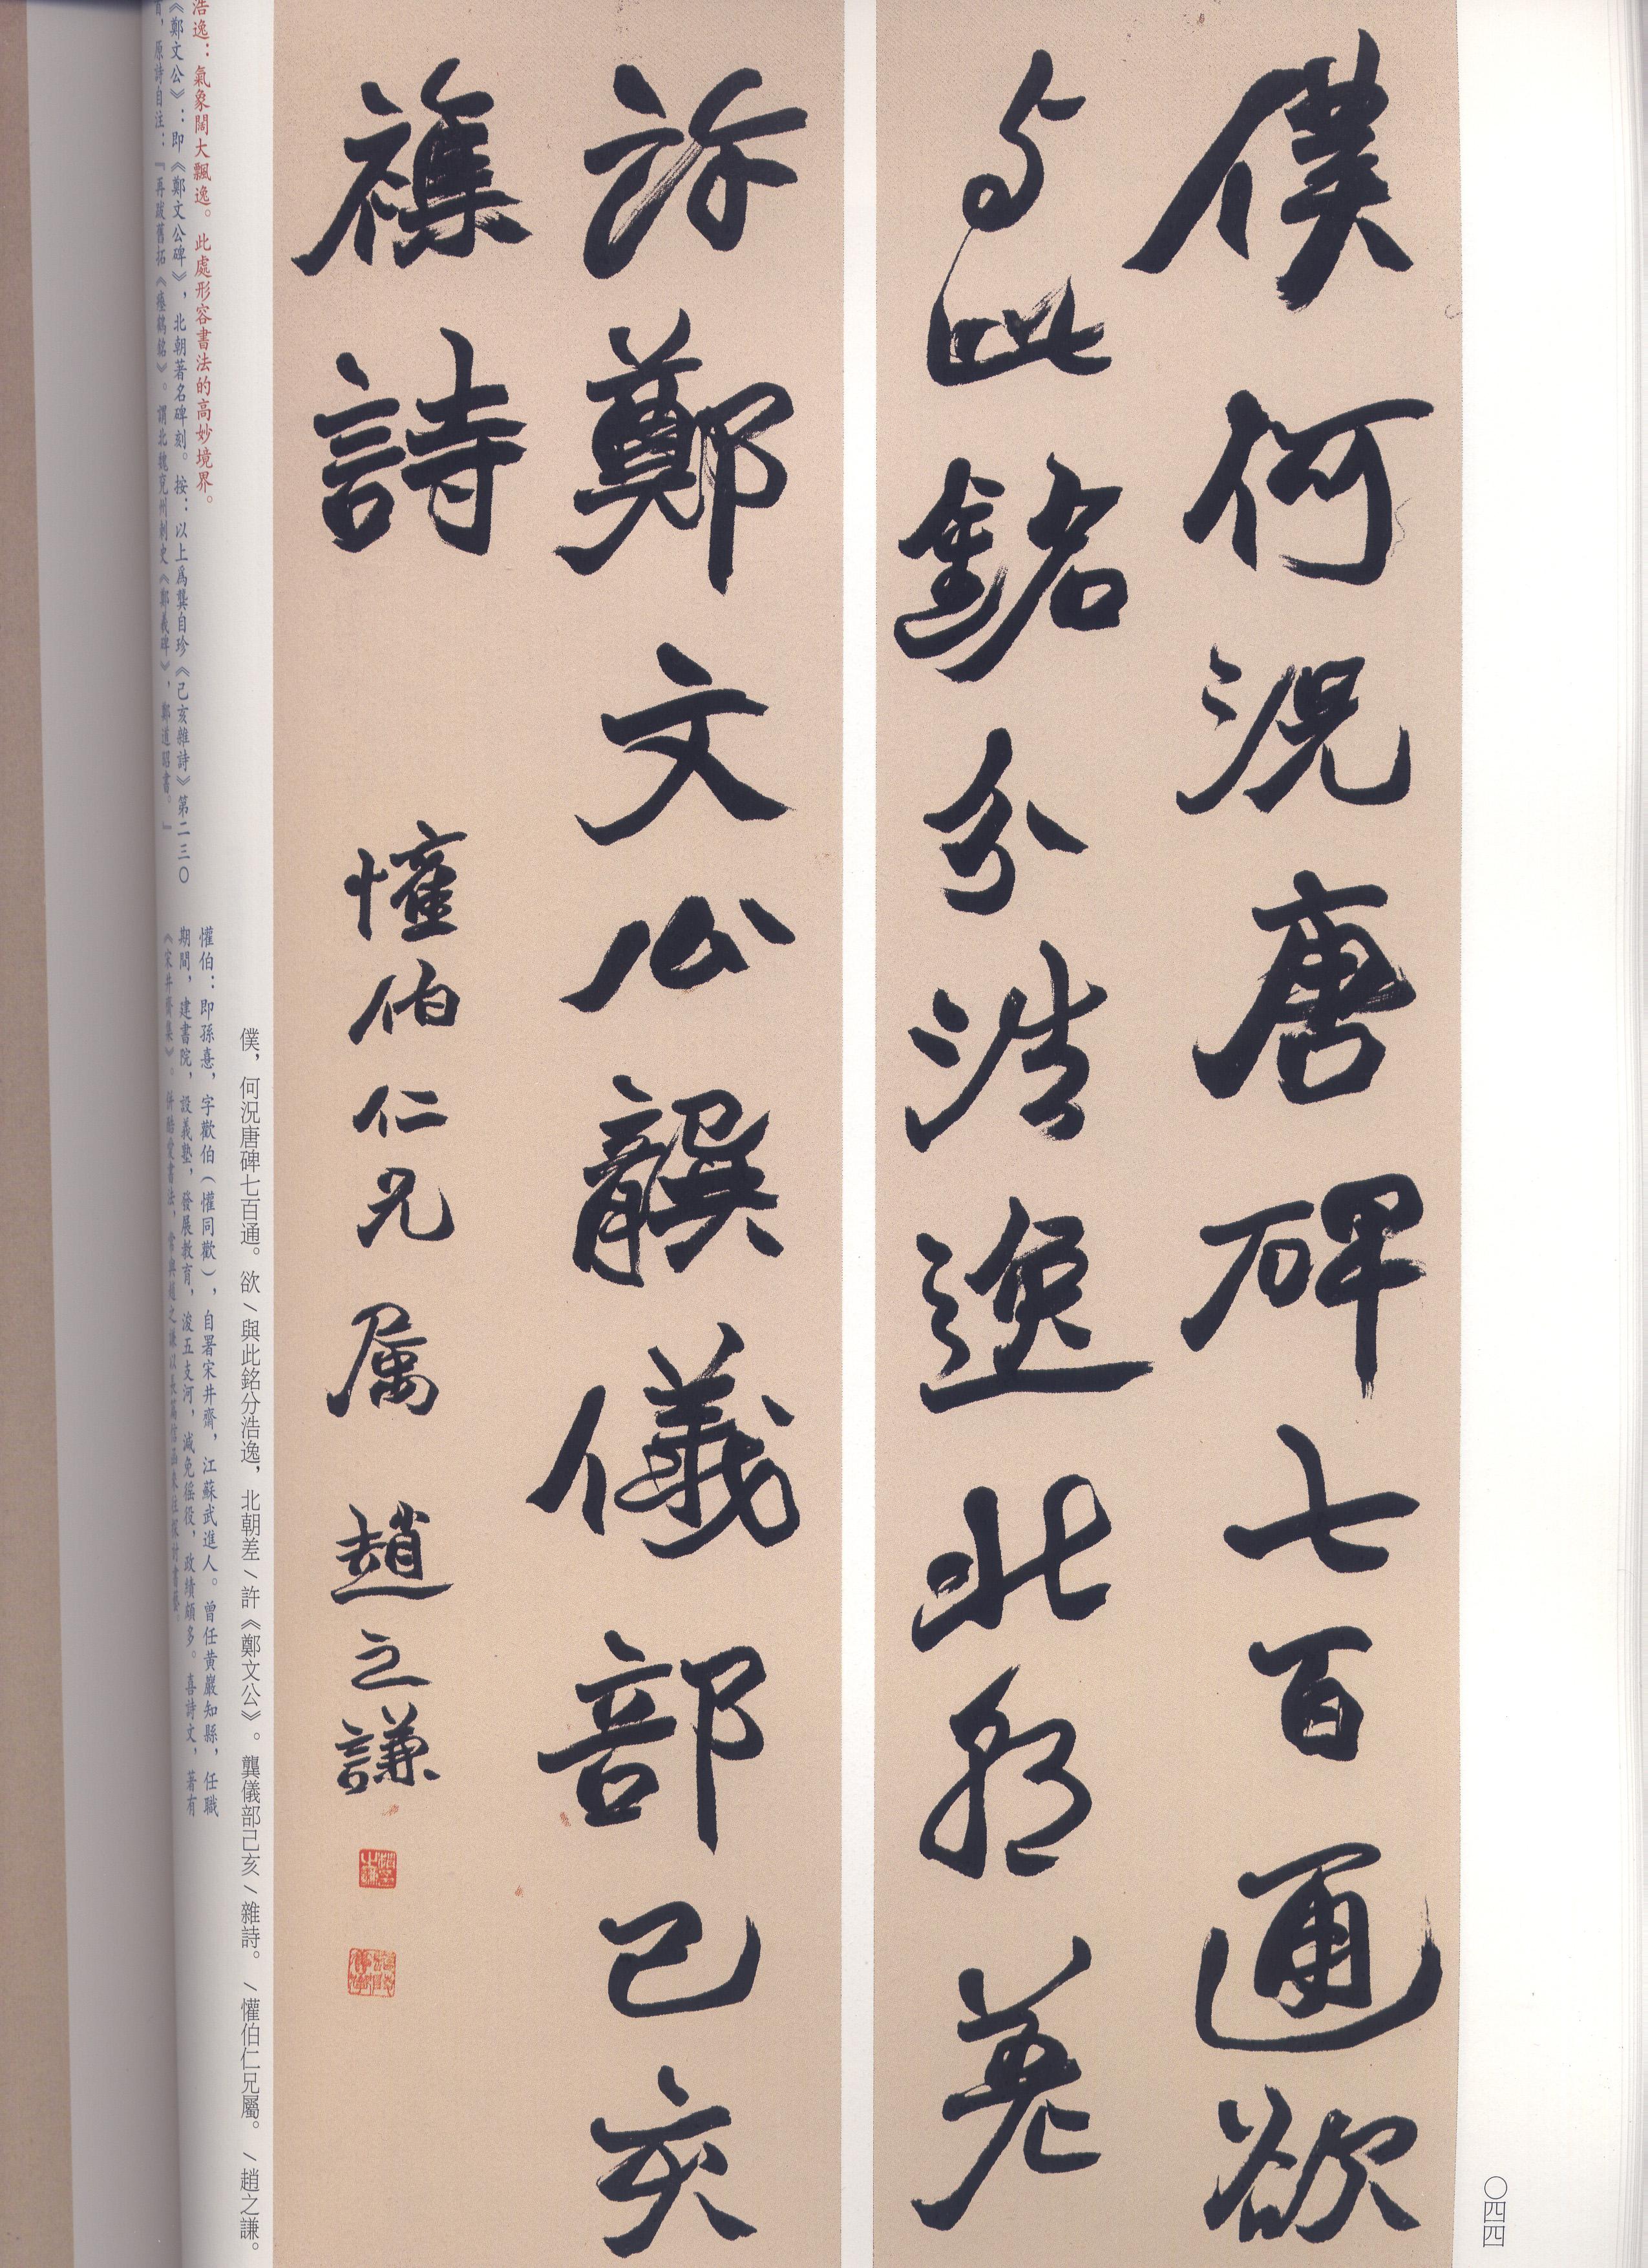 僕何況唐碑七百通欲
与此銘分浩逸北朝差
許鄭文公龔儀部己亥
襍詩
懽伯仁兄属 趙之謙
僕，何況唐碑七百通。欲\與此銘分浩逸，北朝差\許《鄭文公》。龔儀部己亥\雜詩。\懽伯仁兄屬。\趙之謙。
浩逸：氣象闊大飄逸。此處形容書法的高妙境界。
《鄭文公》：即《鄭文公碑》，北朝著名碑刻。按：以上爲龔自珍《己亥雜詩》第二三〇
首，原詩自注：『再跋舊拓《瘞鶴銘》。謂北魏兗州刺史《鄭羲碑》，鄭道昭書。』
懽伯：即孫憙，字歡伯（懽同歡），自署宋井齋，江蘇武進人。曾任黄巖知縣，任職
期間，建書院，設義塾，發展教育，浚五支河，減免徭役，政績頗多。喜詩文，著有
《宋井齋集》。併酷愛書法，常與趙之謙以長篇信函來往探討書藝。
〇四四